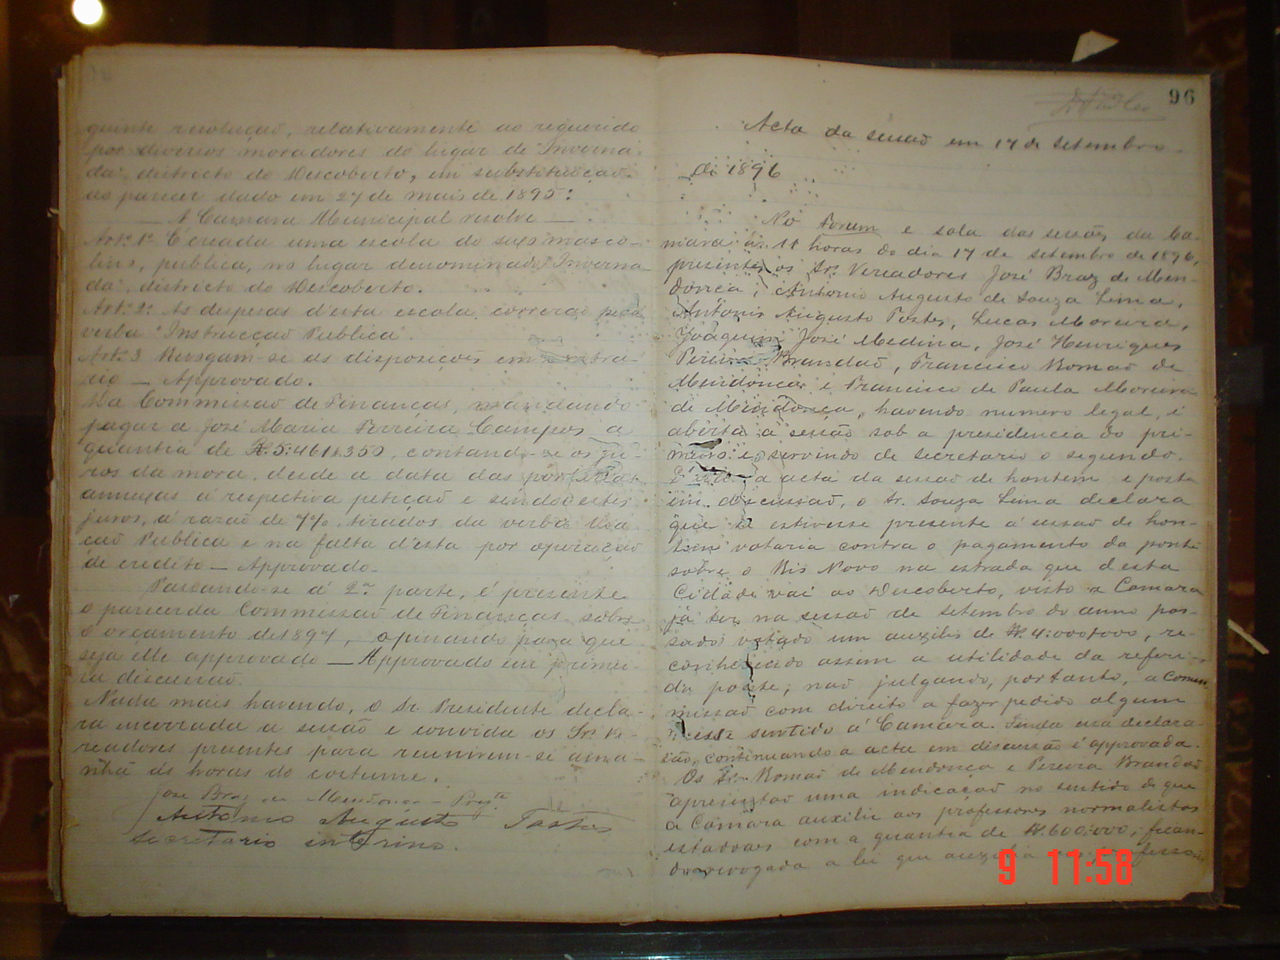 guinte resolução, relativamente ao requerido
por diversos moradores do lugar de "Inverna-
da", districto do Descoberto, em substituição
ao parecer dado em 27 de maio de 1895:
— A Camara Municipal resolve —
Art.º 1º É creada uma escola do sexo mascu-
lino, publica, no lugar denominado "Inverna-
da", districto do Descoberto.
Art.º 2º As despesas d'esta escola correrão pela
verba "Instrucção Publica".
Art.º 3 Revogam-se as disposições em contra-
rio — Approvado.
Da Commissão de Finanças, mandando
pagar a José Maria Ferreira Campos a
quantia de R. 5:461$350, contando-se os ju-
ros da mora, desde a data das
annexas á respectiva petição e sendo estes
juros, á razão de 7%, tirados da verba
Publica e na falta d'esta por operação
de credito — Approvado.
Passando-se á 2ª parte, é presente
o parecer da Commissão de Finanças sobre
o orçamento de 1897, opinando para que
seja elle approvado — Approvado em primei-
ra discussão.
Nada mais havendo, o Sr. Presidente decla-
ra encerrada a sessão e convida os Srs. Ve-
readores presentes para reunirem-se ama-
nhã ás horas do costume.
José Braz de Mendonça - Presᵗᵉ
Antonio Augusto Tostes
Secretario interino.
96
Acta da sessão em 17 de Setembro
de 1896
No Forum e sala das sessões da Ca-
mara ás 11 horas do dia 17 de setembro de 1896,
presentes os Srs. Vereadores José Braz de Men-
donça, Antonio Augusto de Souza Lima,
Antonio Augusto Tostes, Lucas Moreira,
Joaquim José Medina, José Henriques
Pereira Brandão, Francisco Romão de
Mendonça e Francisco de Paula Moreira
de Mendonça, havendo numero legal, é
aberta a sessão sob a presidencia do pri-
meiro e servindo de secretario o segundo.
É lida a acta da sessão de hontem e posta
em discussão, o Sr. Souza Lima declara
que se estivesse presente á sessão de hon-
tem votaria contra o pagamento da ponte
sobre o Rio Novo na estrada que d'esta
Cidade vai ao Descoberto, visto a Camara
já ter, na sessão de setembro do anno pas-
sado, votado um auxilio de R. 4:000$000, re-
conhecendo assim a utilidade da referi-
da ponte; não julgando, portanto, a Com-
missão com direito a fazer pedido algum
n'esse sentido á Camara. Finda essa declara-
ção, continuando a acta em discussão é approvada.
Os Srs. Romão de Mendonça e Pereira Brandão
apresentão uma indicação no sentido de que
a Camara auxilie aos professores normalistas
estadoaes com a quantia de R. 600:000, fican-
do revogada a lei que auxilia
9 11:58